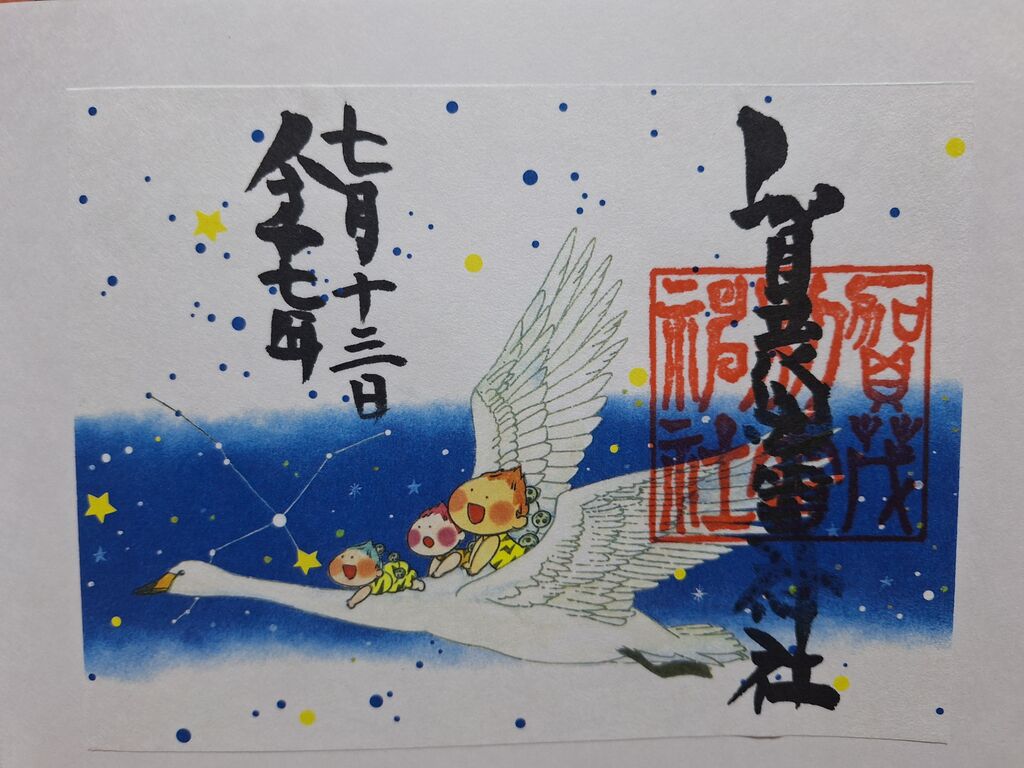 賀茂別雷神社
賀茂
別雷
神社
七月十三日
令和七年